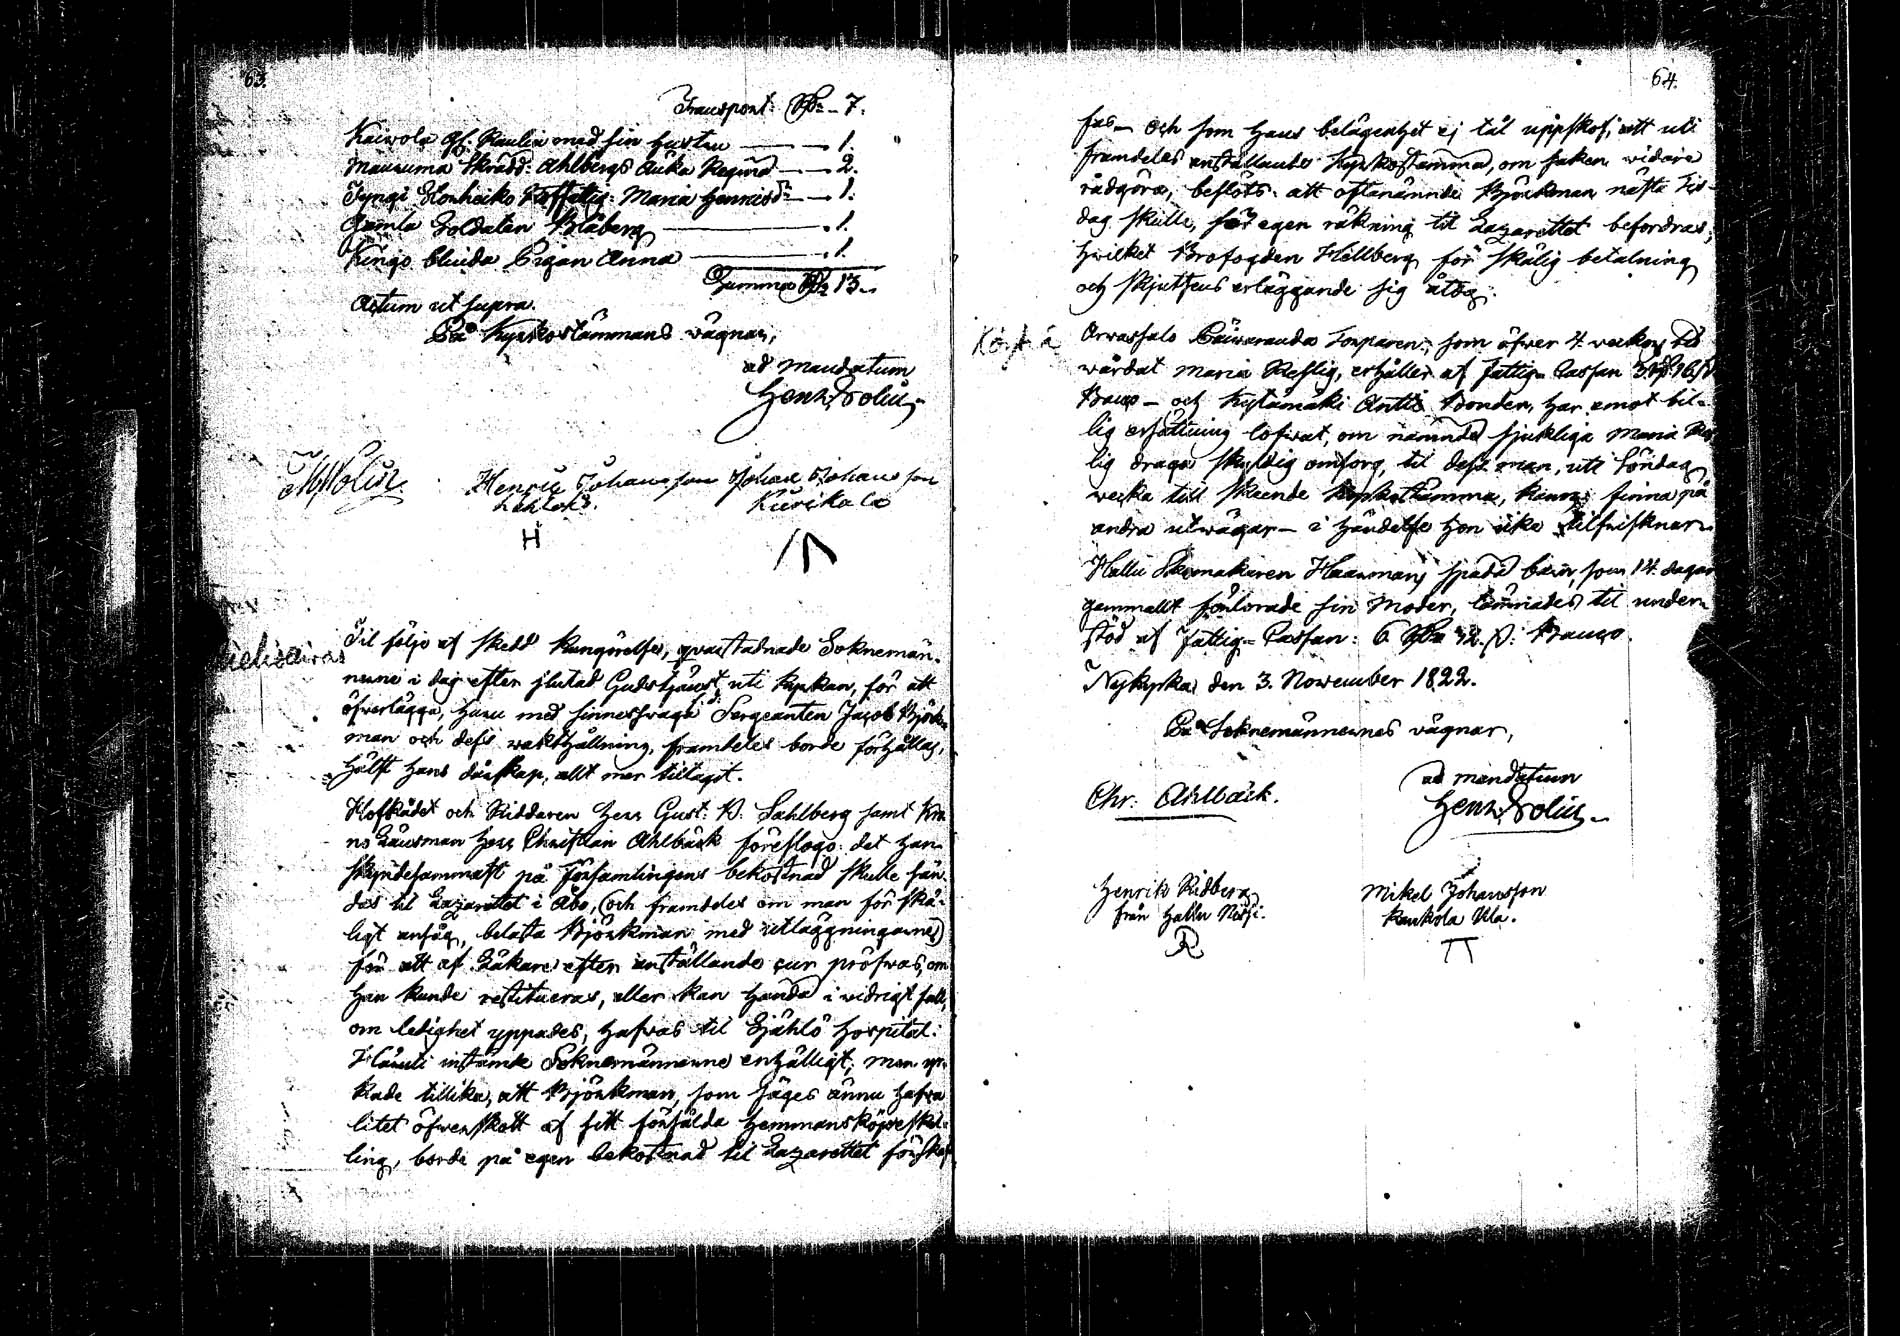 63.
Transport: Rbr – 7.
Kaivola Gl. Paulin med sin hustru — 1.
Mausuma Skrädd: Ahlbergs Änka Regina — 2.
Tyngi Maria Henricsdr — 1.
Gamla Soldaten Blåberg — 1.
Kingo blinda Pigan Anna — 1.
Summa Rbr 13.
Actum ut supra.
På Kyrkostämmans vägnar,
ad mandatum
Henr: Polin
Henric Johansson Johan Johansson
Kurikala
H
Til följe af skedd kungörelse, qvarstadnade Soknemän-
nerne i dag efter slutad Gudstjänst, uti kyrkan, för att
öfverlägga, huru med sinnessvaga Sergeanten Jacob Björk-
man och dess wakthållning, framdeles borde förhållas,
hälst hans dårskap, allt mer tiltagit.
Hofrådet och Riddaren Herr Gust: W. Sahlberg samt Kro-
no Länsman Herr Christian Ahlbäck föreslogo: det han
skyndesammast på Församlingens bekostnad skulle sän-
das til Lazarettet i Åbo, (och framdeles om man för skä-
ligt ansåg, belasta Björkman med utläggningarne)
för att af Läkare efter anställande cur pröfwas, om
han kunde restitueras, eller kan hända i vidrigt fall,
om ledighet yppades, hafwas til Själö Hospital.
Häruti instämde Soknemännerne enhälligt; men yr-
kade tillika, att Björkman, som säges ännu hafva
litet öfwerskott af sitt försålda hemmansköpeskil-
ling, borde på egen bekostnad til Lazarettet förskaf-
64.
fas – och som hans belägenhet ej tål uppskof, att uti
framdeles anställande Kyrkostämma, om saken vidare
rådgöra, beslöts: att oftanämnde Björkman nästa Tis-
dag skulle, för egen räkning til Lazarettet befordras;
hvilket Brofogden Hällberg för skälig betalning
och skjutsens erläggande sig åtog.
Köyhä
Orwassalo Päiwaranda Torparen, som öfwer 4 veckor
wårdat Maria Reslig, erhåller af Fattig-Cassan
Banco – och Kytämäki Antti Bonden, har emot bil-
lig ersättning lofwat, om nämnda sjukliga Maria Res-
lig draga skyldig omsorg, til dess man, uti Söndag
vecka till skeende Kyrkostämma, kunnat finna på
andra utwägar – i händelse hon icke tilfrisknar.
Hallu Skomakaren Haarmans späda barn, som 14 dagar
gammalt förlorade sin Moder, lämnades til under-
stöd af Fattig-Cassan: 6 Rbr 32. s: Banco.
Nykyrka, den 3. November 1822.
På Soknemännernes vägnar,
ad mandatum
Chr: Ahlbäck. Henr. Polin
Henrik Ridberg Mikel Johansson
från Hallu Kaukola Ala.
R